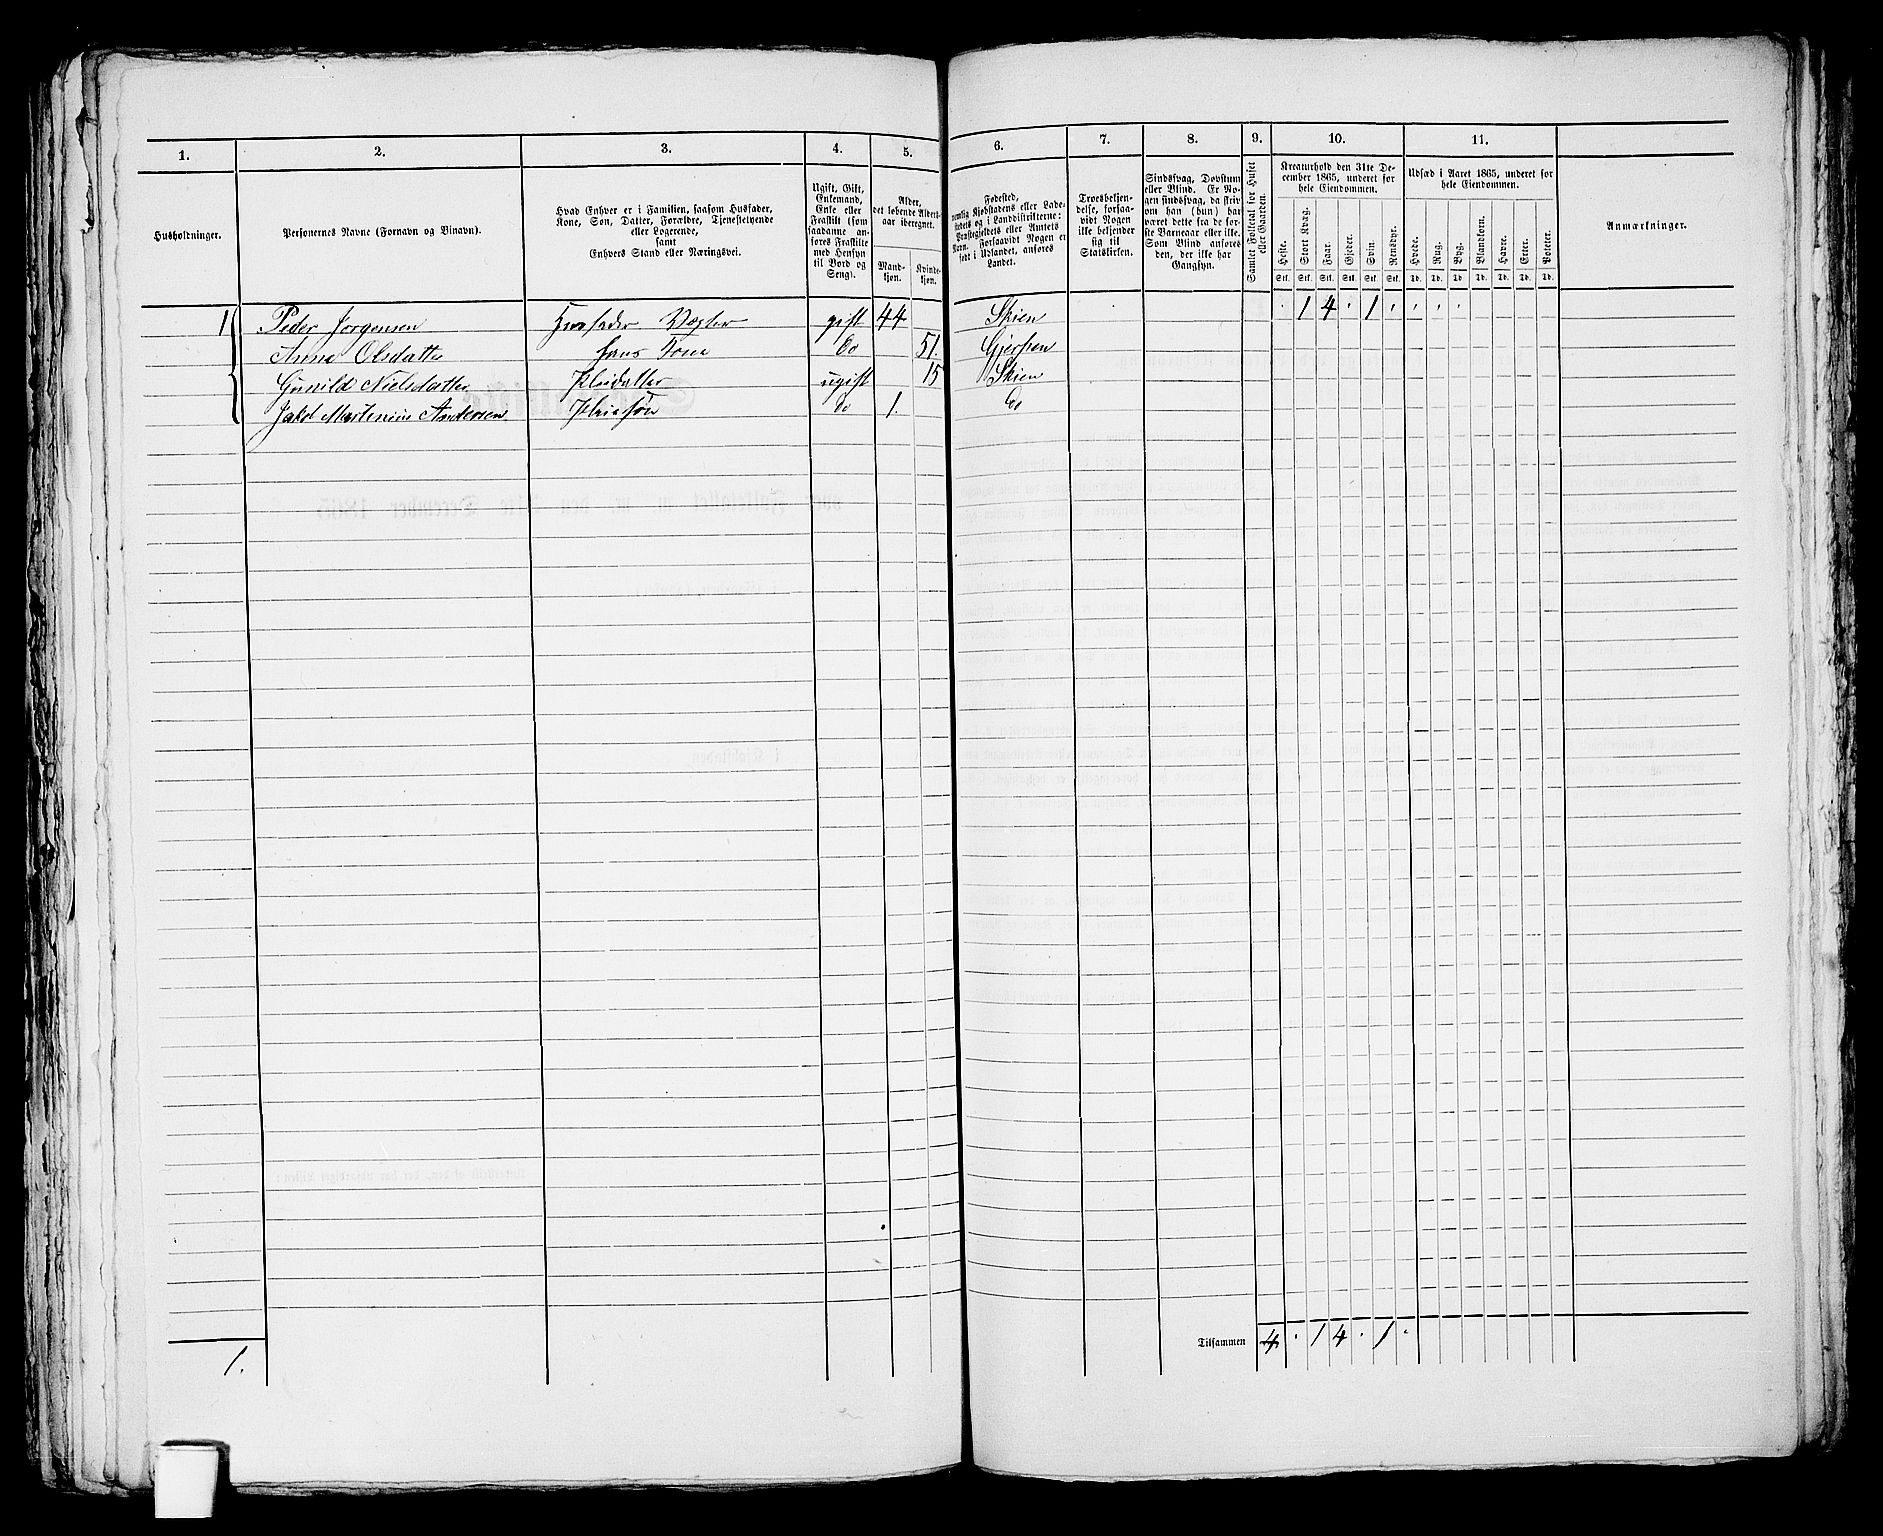 1. 2. 3. 4. 5. 6. 7. 8. 9. 10. 11.
Husholdninger.
Personernes Navne (Fornavn og Binavn).
Hvad Enhver er i Familien, saasom Husfader,
Kone, Søn, Datter, Forældre, Tjenestetyende
eller Logerende,
samt
Enhvers Stand eller Næringsvei.
Ugift, Gift,
Enkemand,
Enke eller
Fraskilt (som
saadanne an-
føres Fraskilte
med Hensyn
til Bord og
Seng).
Alder,
det løbende Alders-
aar iberegnet.
Mand-
kjøn.
Kvinde-
kjøn.
Fødested,
nemlig Kjøbstadens eller Lade-
stedets og i Landdistrikterne:
Præstegjeldets eller Amtets
Navn. Forsaavidt Nogen er
født i Udlandet, anføres
Landet.
Troesbekjen-
delse, forsaa-
vidt Nogen
ikke bekjender
sig til
Statskirken.
Sindssvag, Døvstum
eller Blind. Er No-
gen sindssvag, da skriv
om han (hun) har
været dette fra de før-
ste Barneaar eller ikke.
Som Blind anføres
den, der ikke har
Gangsyn.
Samlet Folketal for Huset
eller Gaarden.
Kreaturhold den 31te De-
cember 1865, underet for
hele Eiendommen.
Heste. Stort Kvæg. Faar. Gjeder. Svin. Rensdyr.
Stk. Stk. Stk. Stk. Stk. Stk.
Udsæd i Aaret 1865, underet for
hele Eiendommen.
Hvede. Rug. Byg. Blandkorn. Havre. Erter. Poteter.
Td. Td. Td. Td. Td. Td. Td.
Anmærkninger.
1 Peder Jorgensen Husfader Vægter gift 44 Skien . 1 4 . 1 . . . .
Anne Olsdatter hans Kone do 51. Gjerpen
Gunild Nielsdatter Pleidatter ugift 15 Skien
Jakob Martinius Andersen Pleiesøn do 1. do
Tilsammen 4 . 1 4 . 1 .
1.